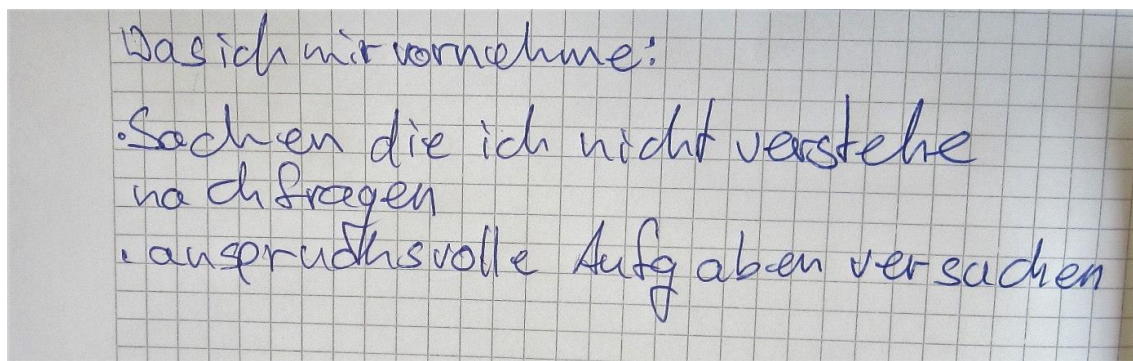 Was ich mir vornehme:
• Sachen die ich nicht verstehe
nachfragen
• anspruchsvolle Aufgaben versuchen